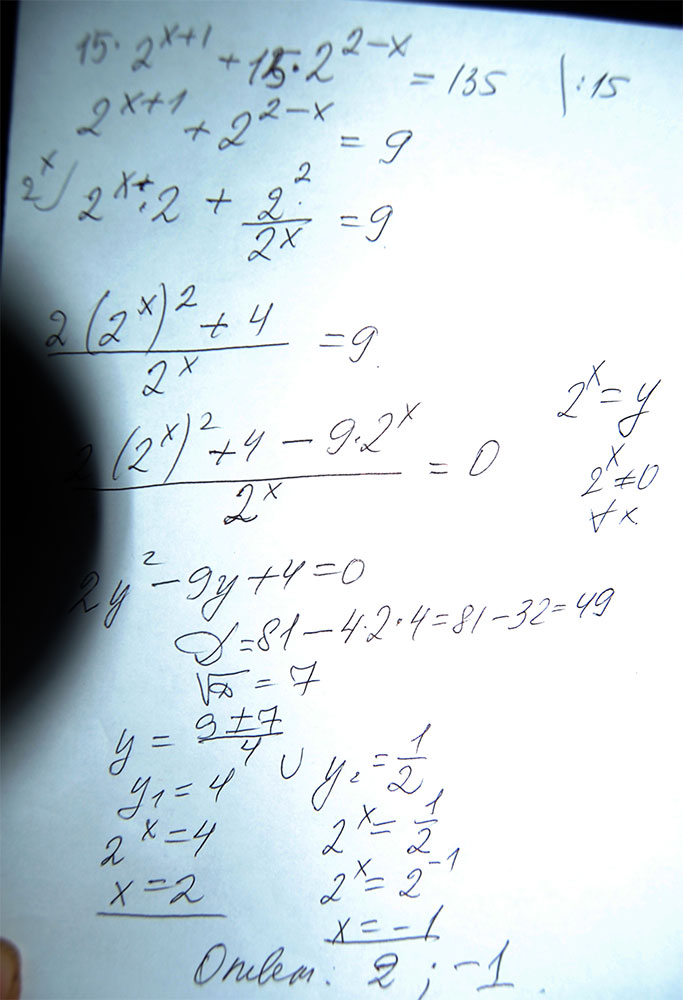 15·2^(x+1) + 15·2^(2−x) = 135 |:15
2^(x+1) + 2^(2−x) = 9
2^x) 2^x·2 + 2^2/2^x = 9
(2(2^x)^2 + 4)/2^x = 9
(2(2^x)^2 + 4 − 9·2^x)/2^x = 0
2^x = y
2^x ≠ 0
∀x
2y^2 − 9y + 4 = 0
D = 81 − 4·2·4 = 81 − 32 = 49
√D = 7
y = (9 ± 7)/4
y₁ = 4 ∪ y₂ = 1/2
2^x = 4 2^x = 1/2
x = 2 2^x = 2^(−1)
x = −1
Ответ: 2 ; −1